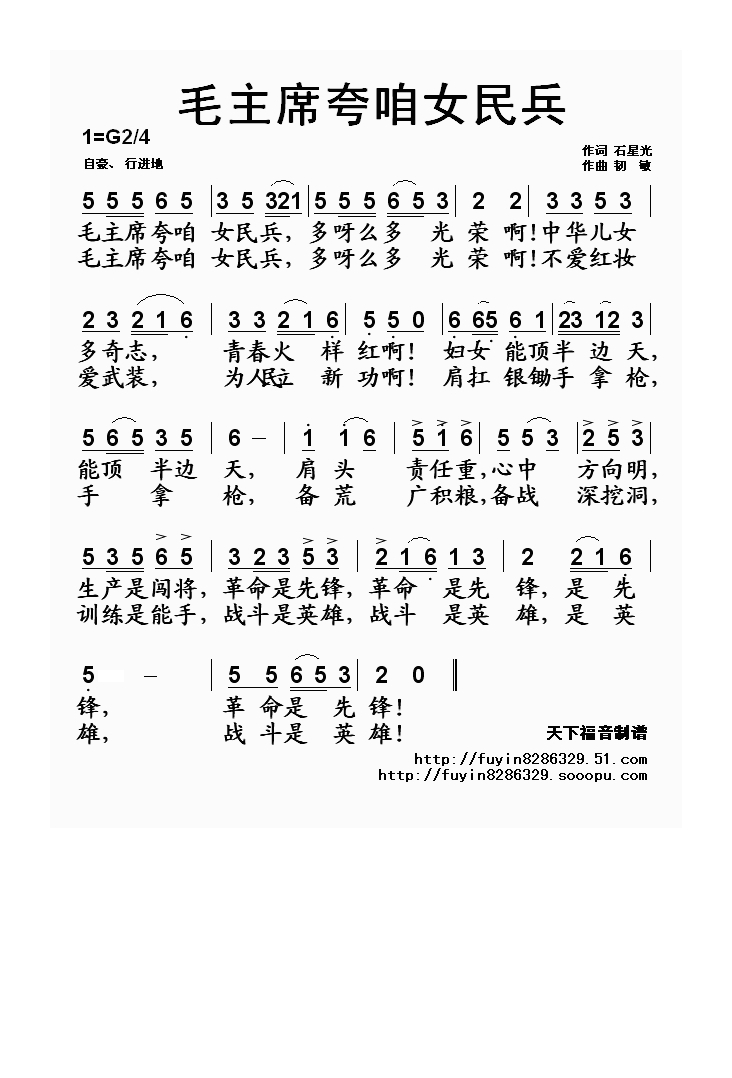 毛主席夸咱女民兵
1=G2/4
自豪、行进地
作词 石星光
作曲 韧 敏
5 5 5 6 5 | 3 5 321 | 5 5 5 6 5 3 | 2 2 | 3 3 5 3 |
毛主席夸咱 女民兵，多呀么多 光 荣 啊！中华儿女
毛主席夸咱 女民兵，多呀么多 光 荣 啊！不爱红妆
2 3 2 1 6 | 3 3 2 1 6 | 5 5 0 | 6 65 6 1 | 23 12 3 |
多奇志， 青春火 样 红啊！ 妇女 能顶半 边 天，
爱武装， 为人民立 新 功啊！ 肩扛 银锄手 拿 枪，
5 6 5 3 5 | 6 – | 1 1 6 | 5 1 6 | 5 5 3 | 2 5 3 |
能顶 半边 天， 肩 头 责任重，心中 方向明，
手 拿 枪， 备 荒 广积粮，备战 深挖洞，
5 3 5 6 5 | 3 2 3 5 3 | 2 1 6 1 3 | 2 2 1 6 |
生产是闯将，革命是先锋，革命 是先 锋，是 先
训练是能手，战斗是英雄，战斗 是英 雄，是 英
5 – | 5 5 6 5 3 | 2 0 ‖
锋， 革 命是 先 锋！
雄， 战 斗是 英 雄！
天下福音制谱
http://fuyin8286329.51.com
http://fuyin8286329.sooopu.com